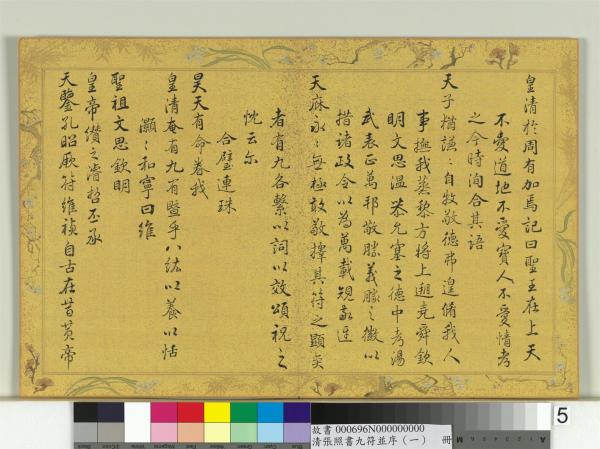 皇清於周有加焉記曰聖王在上天
不愛道地不愛寶人不愛情考
之今時洵合其語
天子猶謙〻自牧敬德弗遑脩我人
事撫我蒸黎方將上遡堯舜欽
明文思溫恭允塞之德中考湯
武表正萬邦敬勝義勝之徽以
措諸政令以為萬載規敬迓
天庥永〻無極敢敬擇其符之顯奕
者有九各繫以詞以效頌祝之
忱云尔
合璧連珠
昊天有命眷我
皇清奄有九有暨乎八紘以養以恬
灝〻和寧曰維
聖祖文思欽明
皇帝纘之濬哲丕承
天鑒孔昭厥符維禎自古在昔黃帝
5
故書 000696N000000000
清張照書九符並序（一） 冊